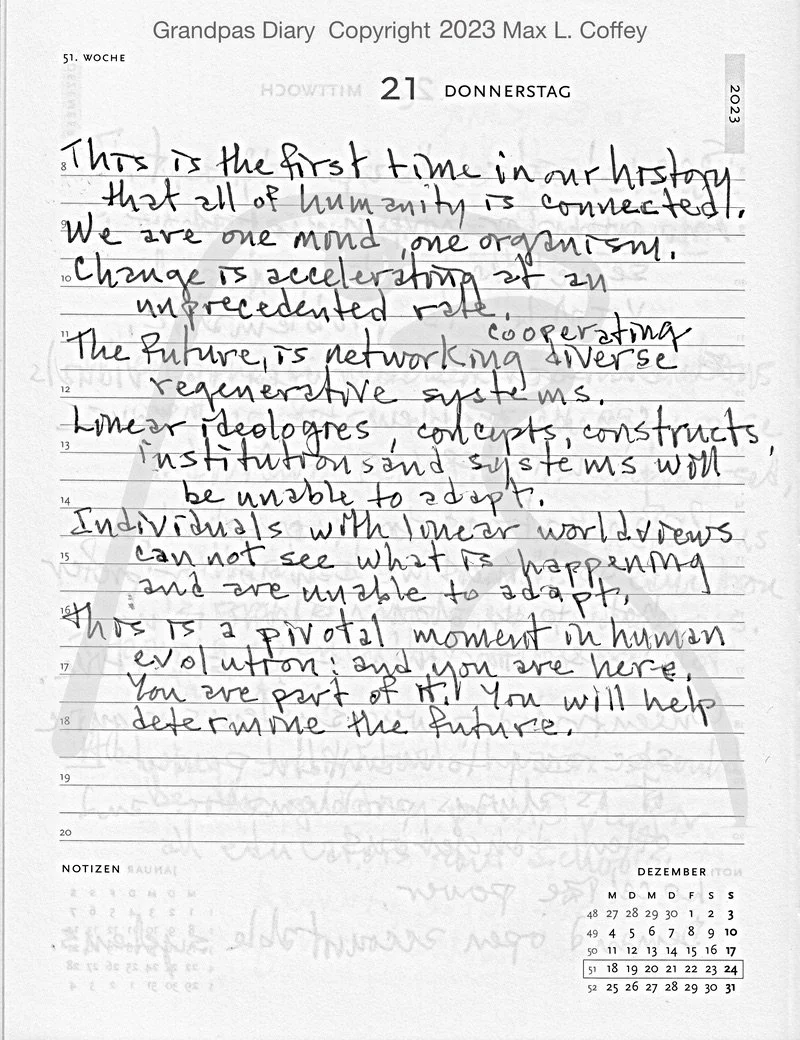 Grandpas Diary Copyright 2023 Max L. Coffey
51. WOCHE
21 DONNERSTAG
2023
8 This is the first time in our history
that all of humanity is connected.
9 We are one mind, one organism.
10 Change is accelerating at an
unprecedented rate.
cooperating
11 The future, is networking diverse
12 regenerative systems.
Linear ideologies, concepts, constructs,
13 institutions and systems will
14 be unable to adapt.
Individuals with linear worldviews
15 can not see what is happening
and are unable to adapt.
16 This is a pivotal moment in human
17 evolution: and you are here.
You are part of it! You will help
18 determine the future.
19
20
NOTIZEN
DEZEMBER
M D M D F S S
48 27 28 29 30 1 2 3
49 4 5 6 7 8 9 10
50 11 12 13 14 15 16 17
51 18 19 20 21 22 23 24
52 25 26 27 28 29 30 31